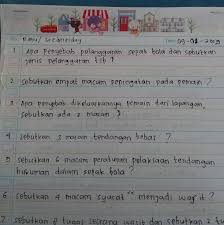 Rabu / Wednesday
09-01-2019
1 Apa Penyebab pelanggaran sepak bola dan sebutkan
jenis pelanggaran tsb ?
2 Sebutkan empat macam pencegatan pada pemain ?
3 Apa penyebab dikeluarkannya pemain dari lapangan,
sebutkan ada 2 macam ?
4 Sebutkan 2 macam tendangan bebas ?
5 Sebutkan 6 macam peraturan pelaksaan tendangan
hukuman dalam sepak bola ?
6 Sebutkan 4 macam syarat" menjadi wasit ?
7 Sebutkan 8 tugas seorang wasit dan sebutkan 2 tu